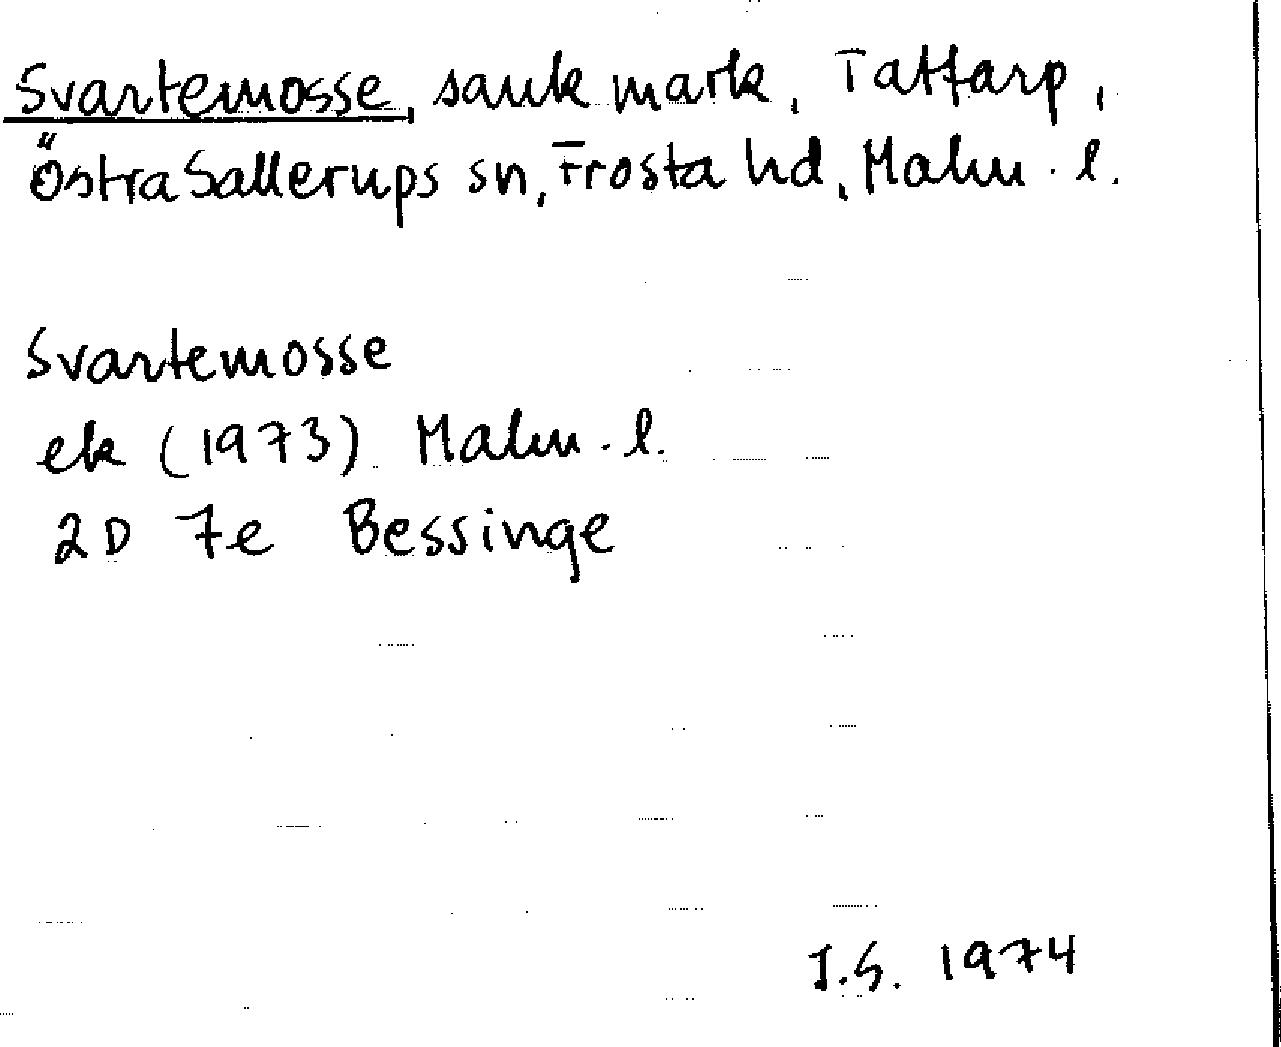 Svartemosse, sank mark, Tattarp,
Östra Sallerups sn, Frosta hd, Malm. l.
Svartemosse
ek (1973) Malm. l.
2D 7e Bessinge
I.S. 1974